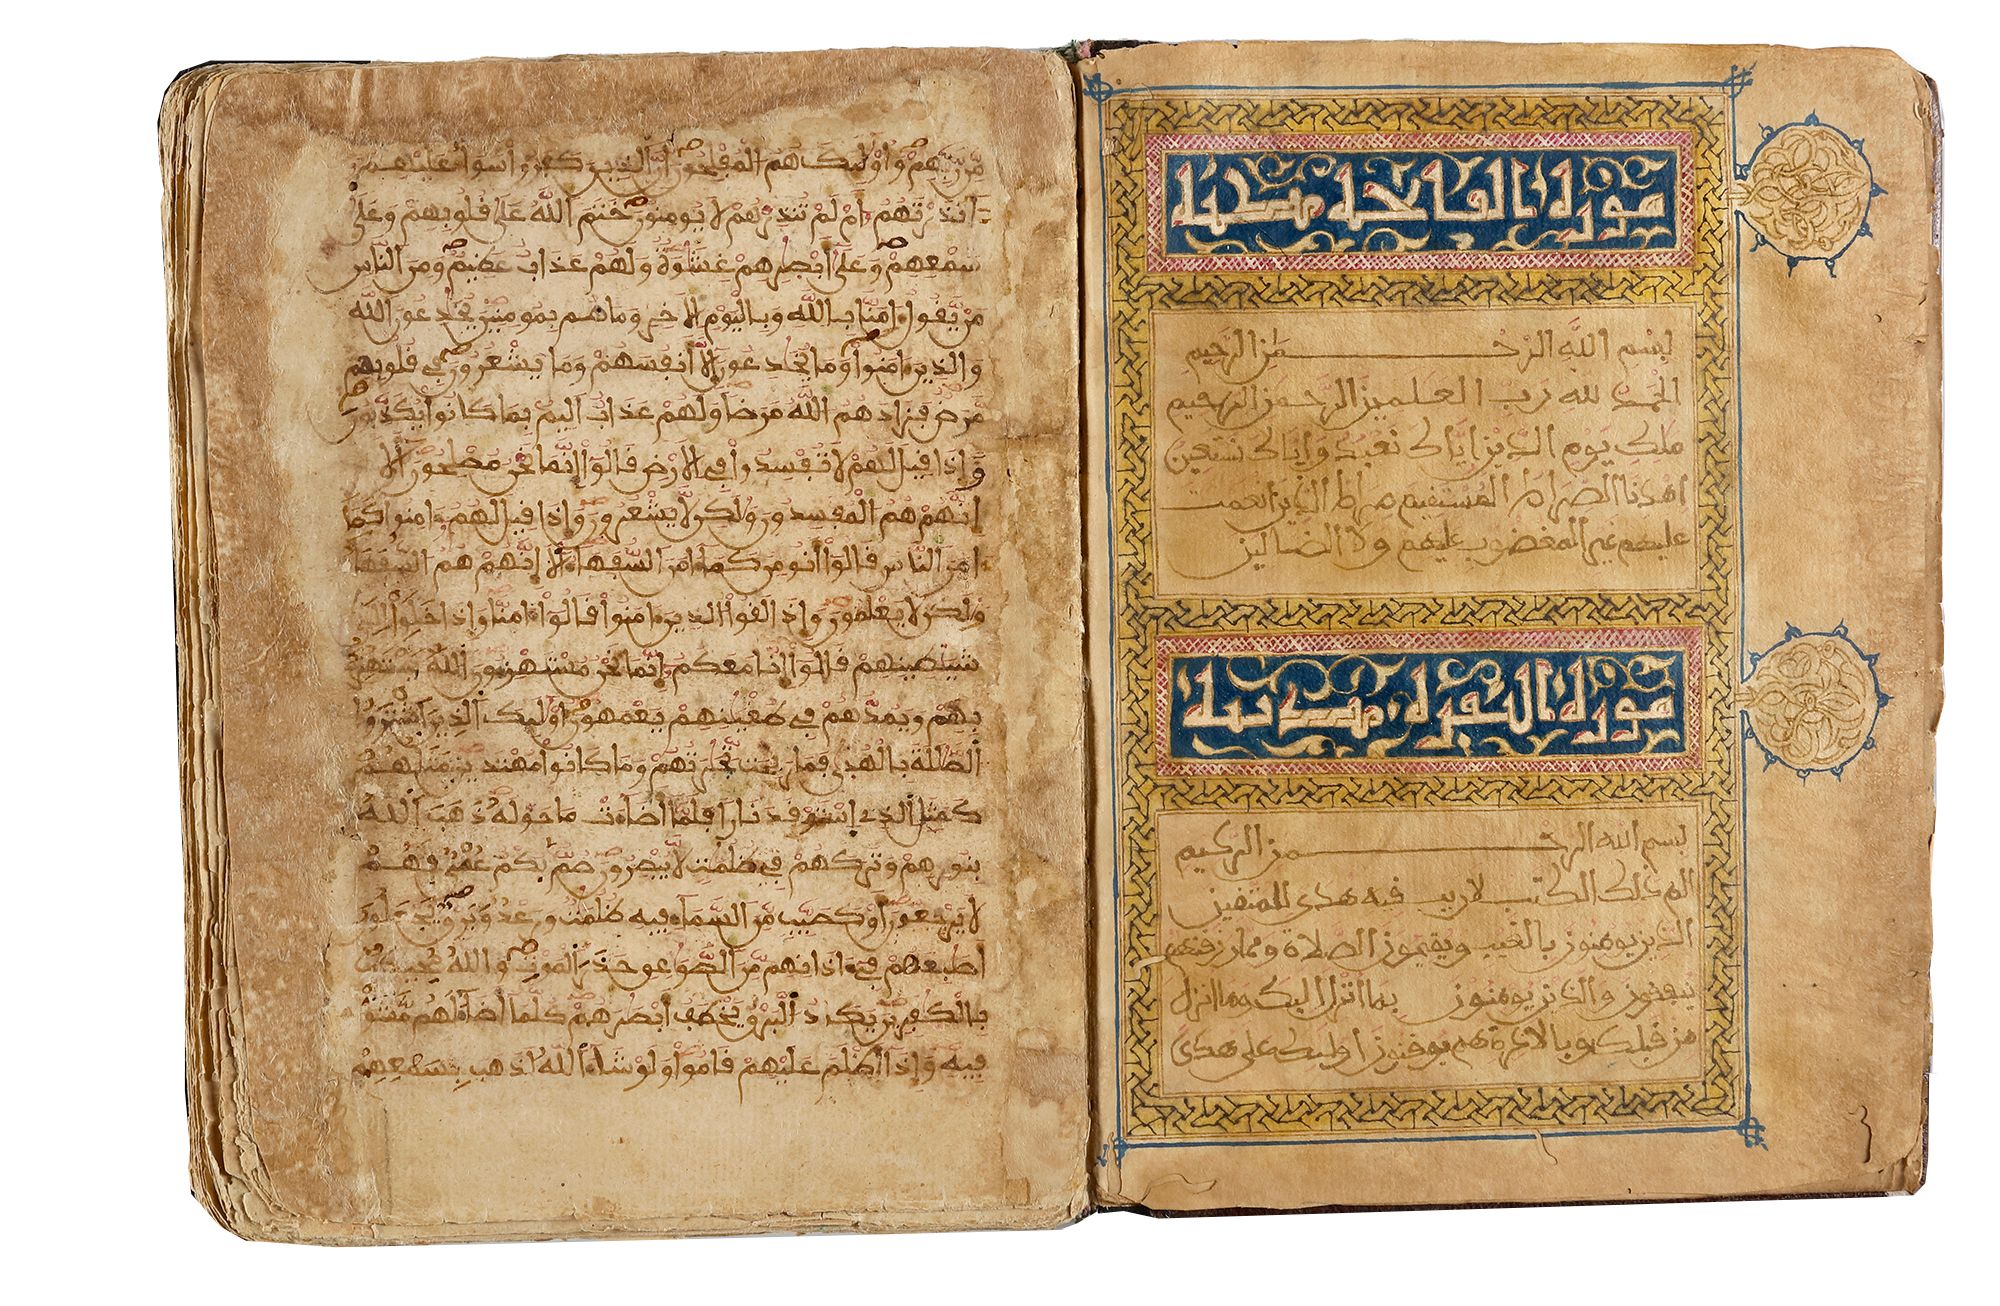 سورة الفاتحة مكية
بسم الله الرحمن الرحيم
الحمد لله رب العلمين الرحمن الرحيم
ملك يوم الدين اياك نعبد واياك نستعين
اهدنا الصراط المستقيم صراط الذين انعمت
عليهم غير المغضوب عليهم ولا الضالين
سورة البقرة مدنية
بسم الله الرحمن الرحيم
الم ذلك الكتب لا ريب فيه هدى للمتقين
الذين يومنون بالغيب ويقيمون الصلاة ومما رزقنهم
ينفقون والذين يومنون بما انزل اليك وما انزل
من قبلك وبالاخرة هم يوقنون اوليك على هدى
مِّن رَّبِّهِمْ وَأُوْلَٰٓئِكَ هُمُ الْمُفْلِحُونَ إِنَّ الذِينَ كَفَرُواْ سَوَآءٌ عَلَيْهِمُۥٓ
ءَآنذَرْتَهُمُۥٓ أَمْ لَمْ تُنذِرْهُمْ لَا يُومِنُونَ خَتَمَ اللَّهُ عَلَىٰ قُلُوبِهِمْ وَعَلَىٰ
سَمْعِهِمْ وَعَلَىٰٓ أَبْصَٰرِهِمْ غِشَٰوَةٌ وَلَهُمْ عَذَابٌ عَظِيمٌ وَمِنَ النَّاسِ
مَنْ يَّقُولُ ءَامَنَّا بِاللَّهِ وَبِالْيَوْمِ الَاخِرِ وَمَا هُم بِمُومِنِينَ يُخَٰدِعُونَ اللَّهَ
وَالذِينَ ءَامَنُواْ وَمَا يُخَٰدِعُونَ إِلَّآ أَنفُسَهُمْ وَمَا يَشْعُرُونَ فِي قُلُوبِهِم
مَّرَضٌ فَزَادَهُمُ اللَّهُ مَرَضاً وَلَهُمْ عَذَابٌ أَلِيمٌ بِمَا كَانُواْ يُكَذِّبُونَ
وَإِذَا قِيلَ لَهُمْ لَا تُفْسِدُواْ فِي الَارْضِ قَالُوٓاْ إِنَّمَا نَحْنُ مُصْلِحُونَ أَلَآ
إِنَّهُمْ هُمُ الْمُفْسِدُونَ وَلَٰكِن لَّا يَشْعُرُونَ وَإِذَا قِيلَ لَهُمُۥٓ ءَامِنُواْ كَمَآ
ءَامَنَ النَّاسُ قَالُوٓاْ أَنُومِنُ كَمَآ ءَامَنَ السُّفَهَآءُ أَلَآ إِنَّهُمْ هُمُ السُّفَهَآءُ
وَلَٰكِن لَّا يَعْلَمُونَ وَإِذَا لَقُواْ الذِينَ ءَامَنُواْ قَالُوٓاْ ءَامَنَّا وَإِذَا خَلَوِاْ اِلَىٰ
شَيَٰطِينِهِمْ قَالُوٓاْ إِنَّا مَعَكُمُۥٓ إِنَّمَا نَحْنُ مُسْتَهْزِءُونَ اللَّهُ يَسْتَهْزِئُ
بِهِمْ وَيَمُدُّهُمْ فِي طُغْيَٰنِهِمْ يَعْمَهُونَ أُوْلَٰٓئِكَ الذِينَ اَشْتَرَوُاْ
الضَّلَٰلَةَ بِالْهُدَىٰ فَمَا رَبِحَت تِّجَٰرَتُهُمْ وَمَا كَانُواْ مُهْتَدِينَ مَثَلُهُمْ
كَمَثَلِ الذِي اِسْتَوْقَدَ نَاراً فَلَمَّآ أَضَآءَتْ مَا حَوْلَهُ ذَهَبَ اللَّهُ
بِنُورِهِمْ وَتَرَكَهُمْ فِي ظُلُمَٰتٍ لَّا يُبْصِرُونَ صُمٌّ بُكْمٌ عُمْيٌ فَهُمْ
لَا يَرْجِعُونَ أَوْ كَصَيِّبٍ مِّنَ السَّمَآءِ فِيهِ ظُلُمَٰتٌ وَرَعْدٌ وَبَرْقٌ يَجْعَلُونَ
أَصَٰبِعَهُمْ فِيٓ ءَاذَانِهِم مِّنَ الصَّوَٰعِقِ حَذَرَ الْمَوْتِ وَاللَّهُ مُحِيطٌ
بِالْكَٰفِرِينَ يَكَادُ الْبَرْقُ يَخْطَفُ أَبْصَٰرَهُمْ كُلَّمَآ أَضَآءَ لَهُم مَّشَوْاْ
فِيهِ وَإِذَآ أَظْلَمَ عَلَيْهِمْ قَامُواْ وَلَوْ شَآءَ اللَّهُ لَذَهَبَ بِسَمْعِهِمْ